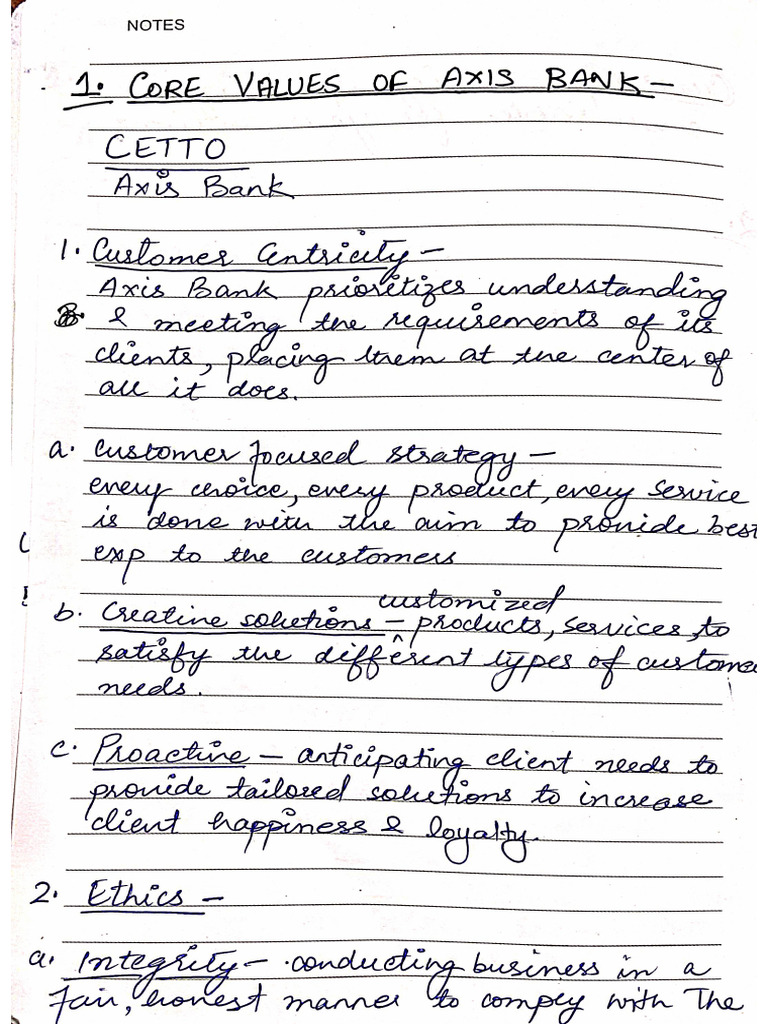 NOTES
1. CORE VALUES OF AXIS BANK -
CETTO
Axis Bank
1. Customer Centricity -
Axis Bank prioritizes understanding
& meeting the requirements of its
clients, placing them at the center of
all it does.
a. Customer focused strategy -
every choice, every product, every service
is done with the aim to provide best
exp to the customers
customized
b. Creative solutions - products, services, to
satisfy the different types of custome
needs.
c. Proactive - anticipating client needs to
provide tailored solutions to increase
client happiness & loyalty.
2. Ethics -
a. Integrity - conducting business in a
fair, honest manner to comply with The